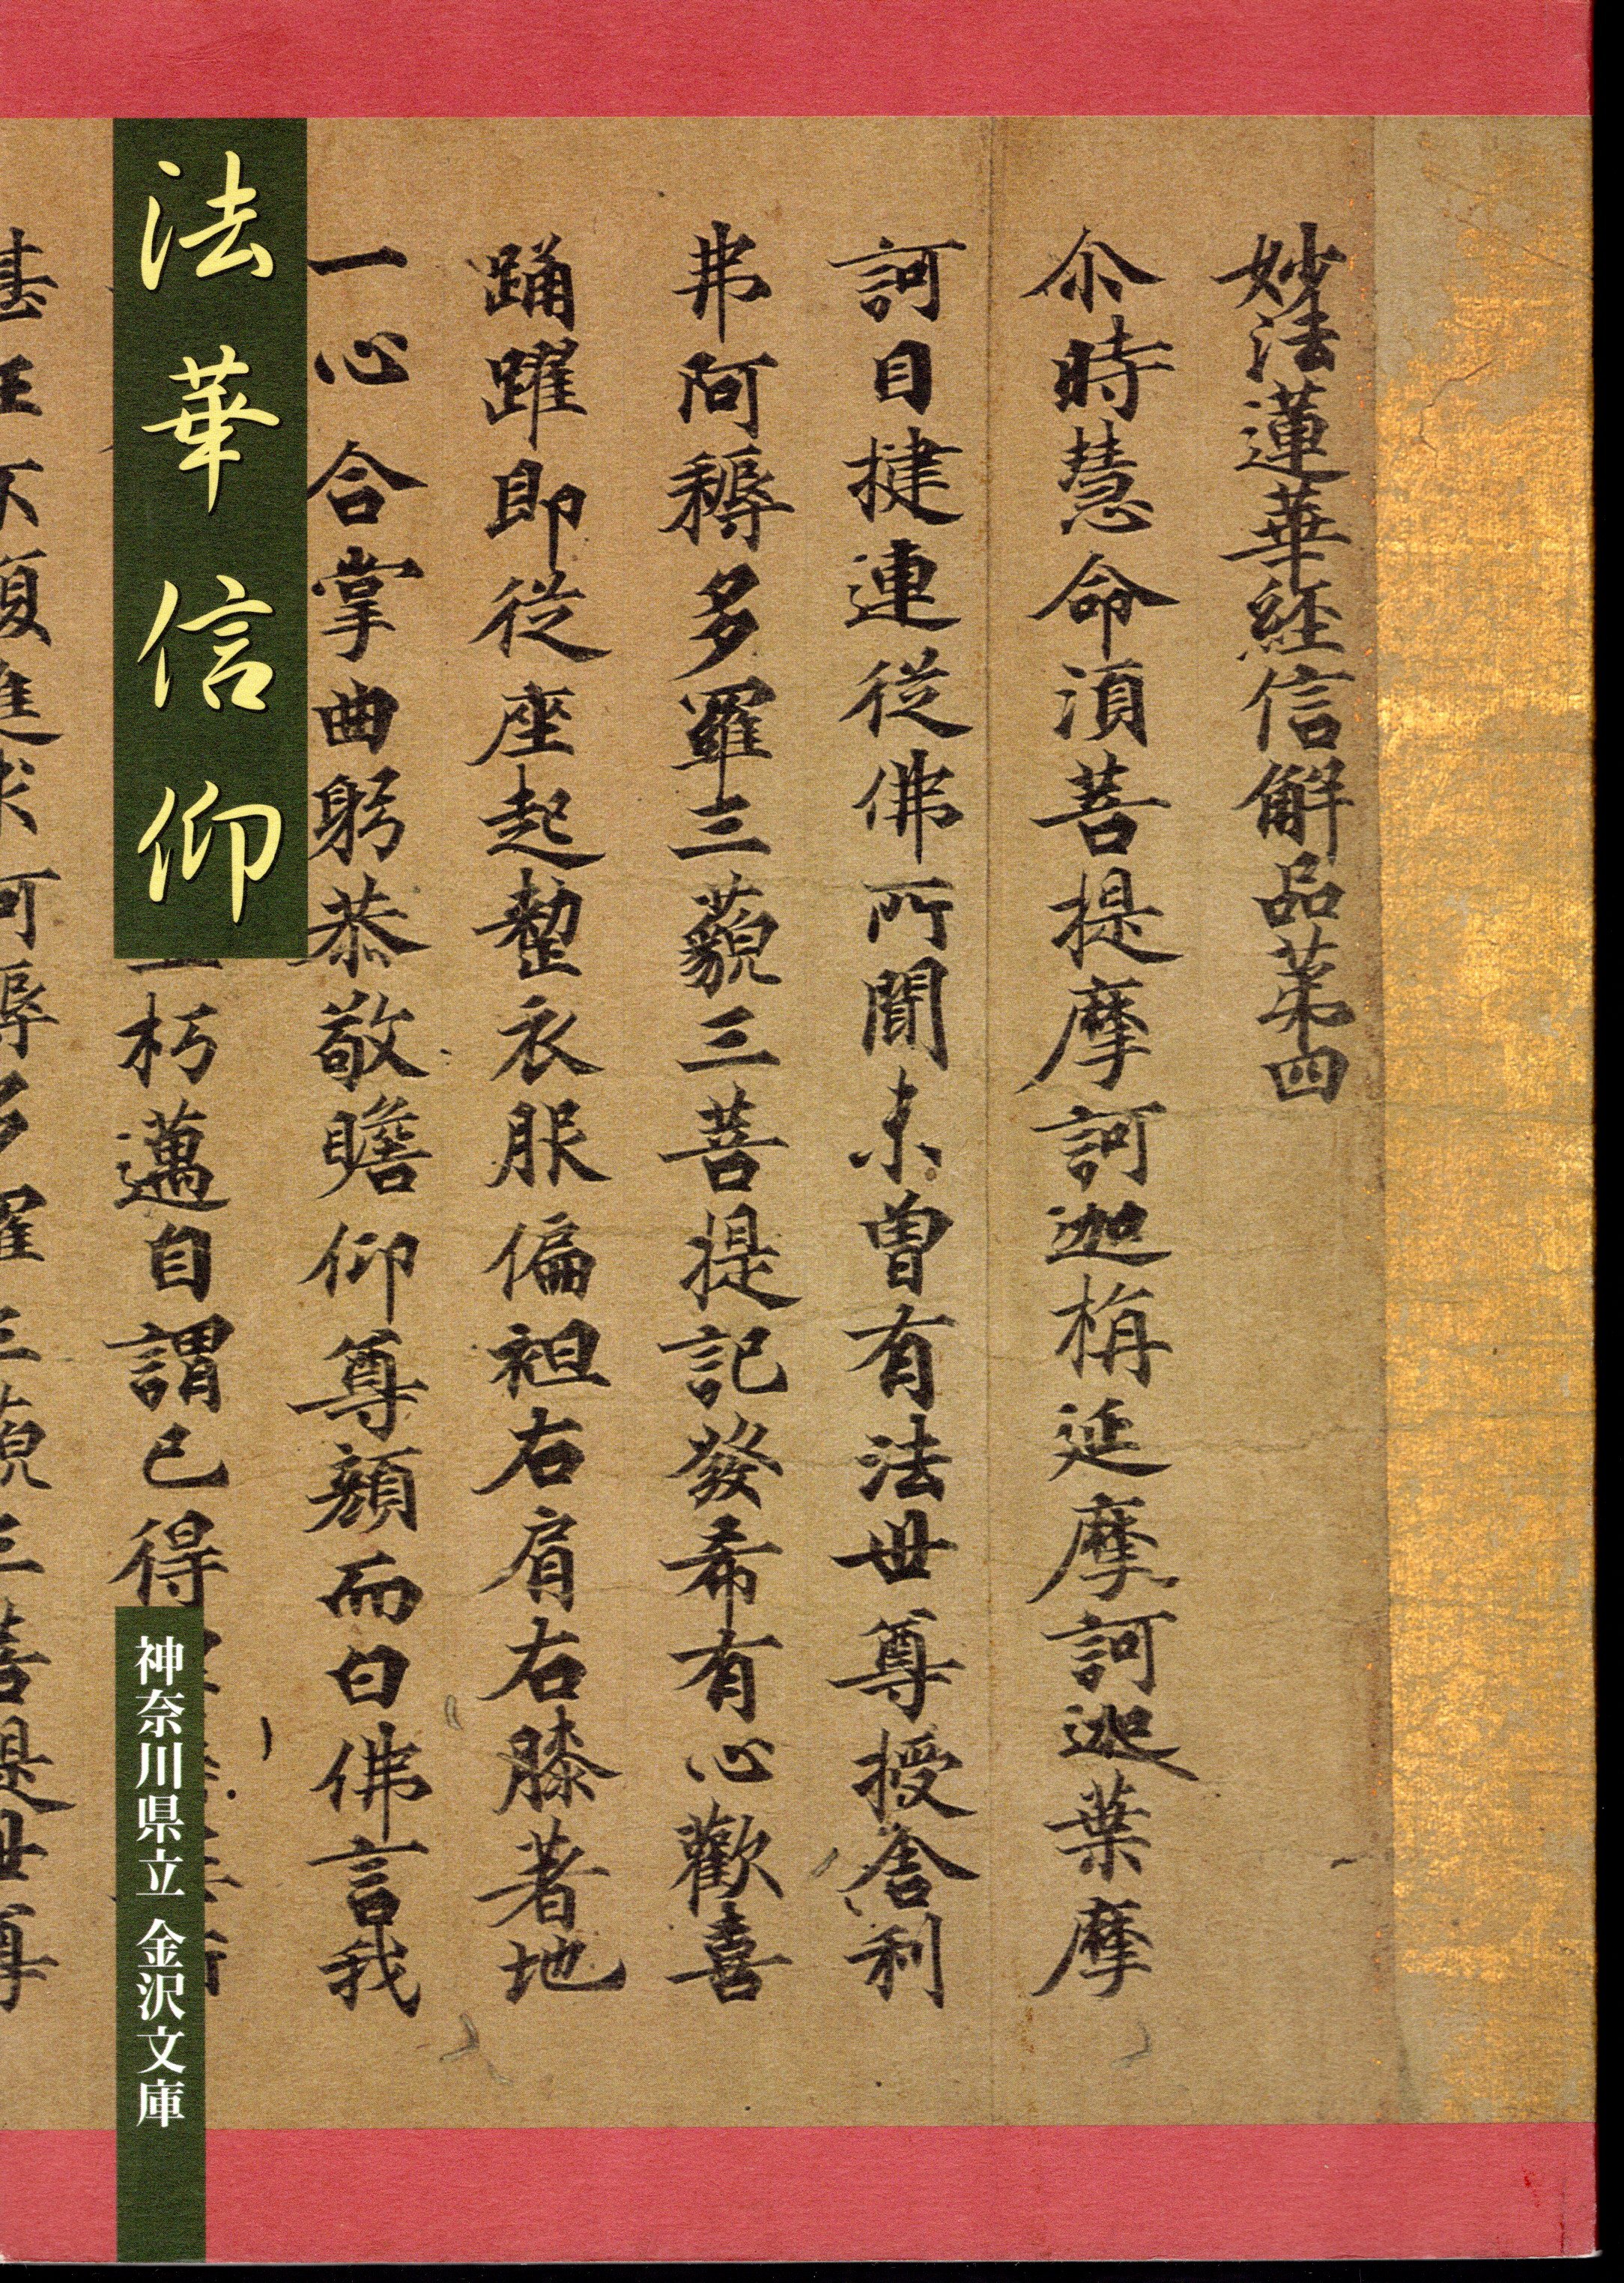 法華信仰
妙法蓮華経信解品苐四
尒時慧命湏菩提摩訶迦栴延摩訶迦葉摩
訶目揵連従佛所聞未曽有法世尊授舎利
弗阿耨多羅三藐三菩提記發希有心歡喜
踊躍即従座起整衣服偏袒右肩右膝著地
一心合掌曲躬恭敬瞻仰尊顔而白佛言我
朽邁自謂已得
甚任不湏進求阿耨多羅三藐三菩提世尊
神奈川県立 金沢文庫